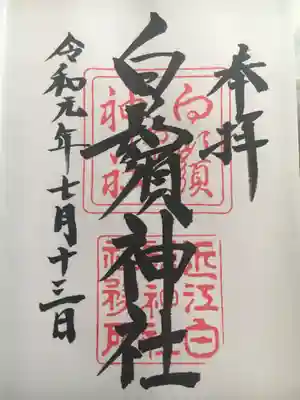 本拝
白鬚神社
令和元年七月十三日
近江白
鬚神社
社務所